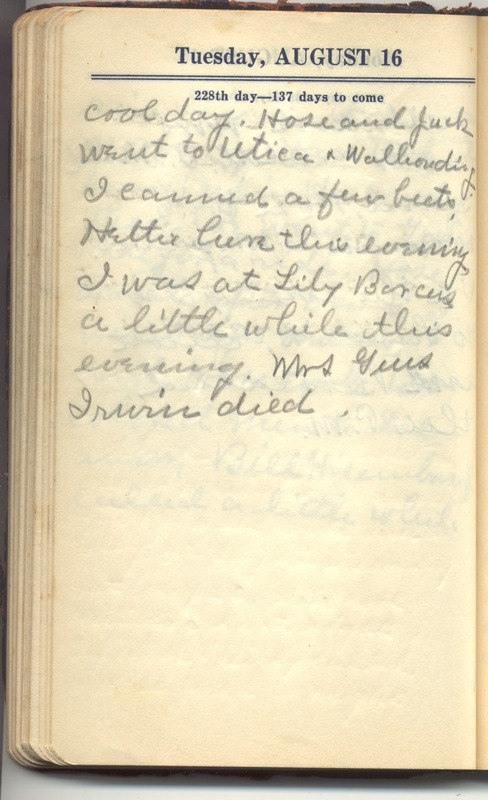 Tuesday, AUGUST 16
228th day—137 days to come
cool day. Hose and Jack
went to Utica & Walhonding.
I canned a few beets,
Hettie here this evening
I was at Lily Barcus
a little while this
evening. Mrs Gus
Irwin died.